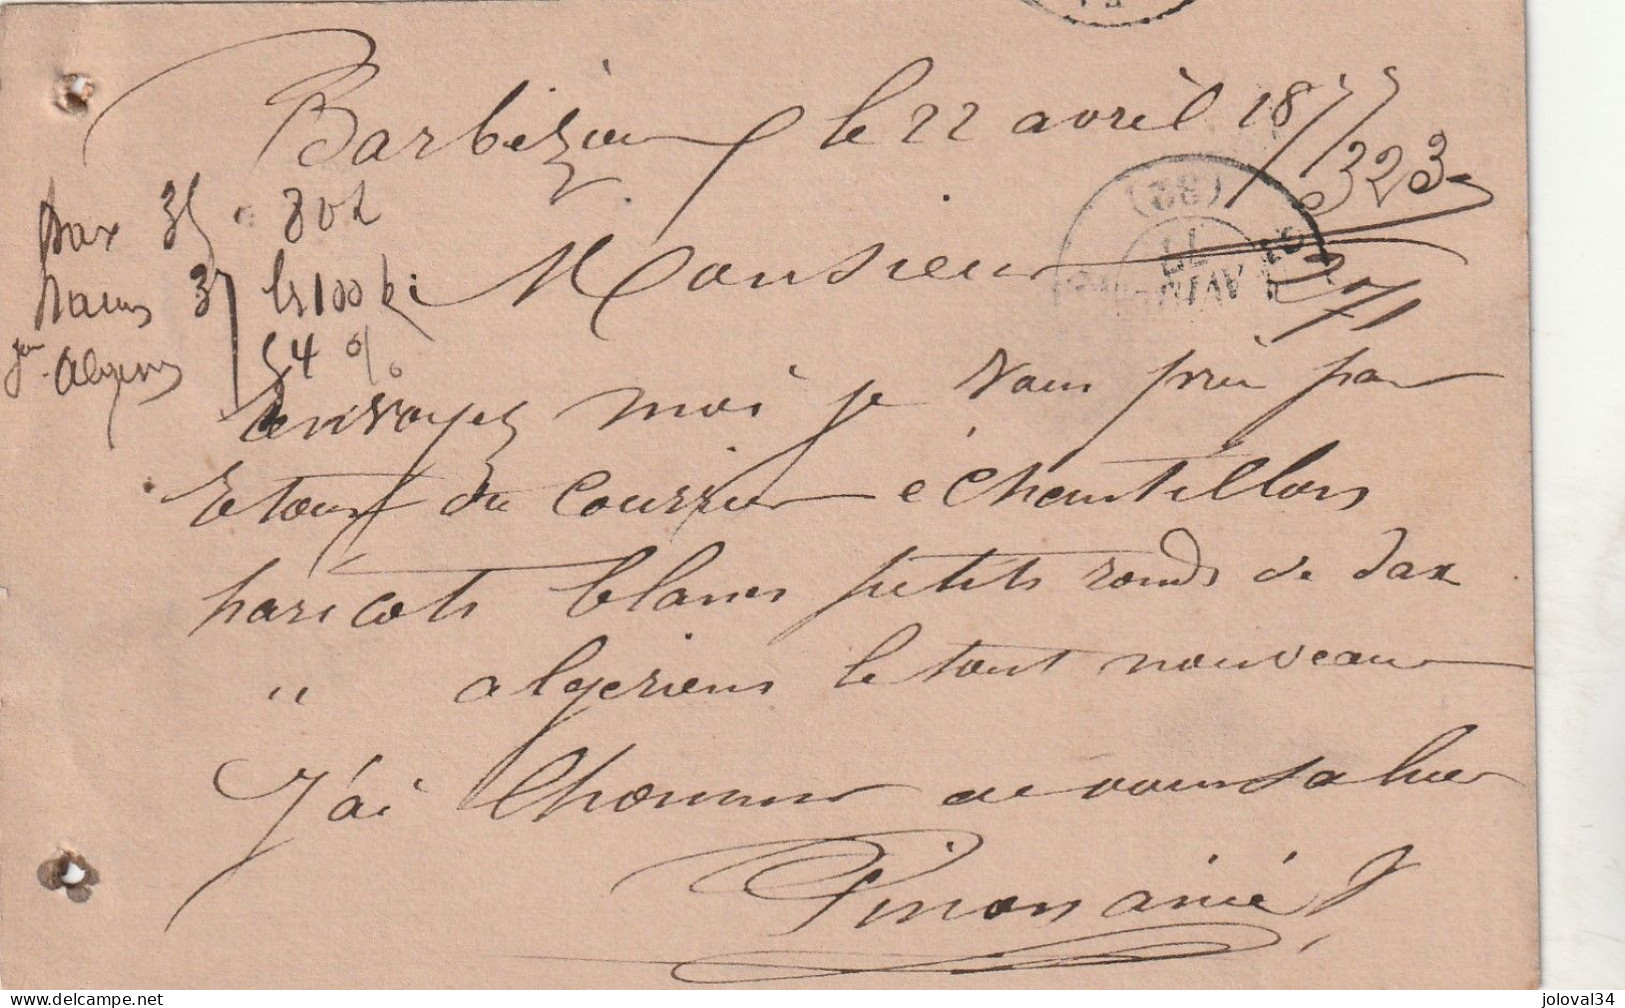 Barbezieux le 22 avril 1877
323
dax 35 - 80 k
les 100 ki
54 %
Monsieur
271
envoyez moi je vous prie par
retour du courrier échantillons
haricots blancs petits ronds de dax
" algeriens le tout nouveau
J'ai l'honneur de vous saluer
Pinon ainé
(32)
AVRIL
77
delcampe.net
joloval34